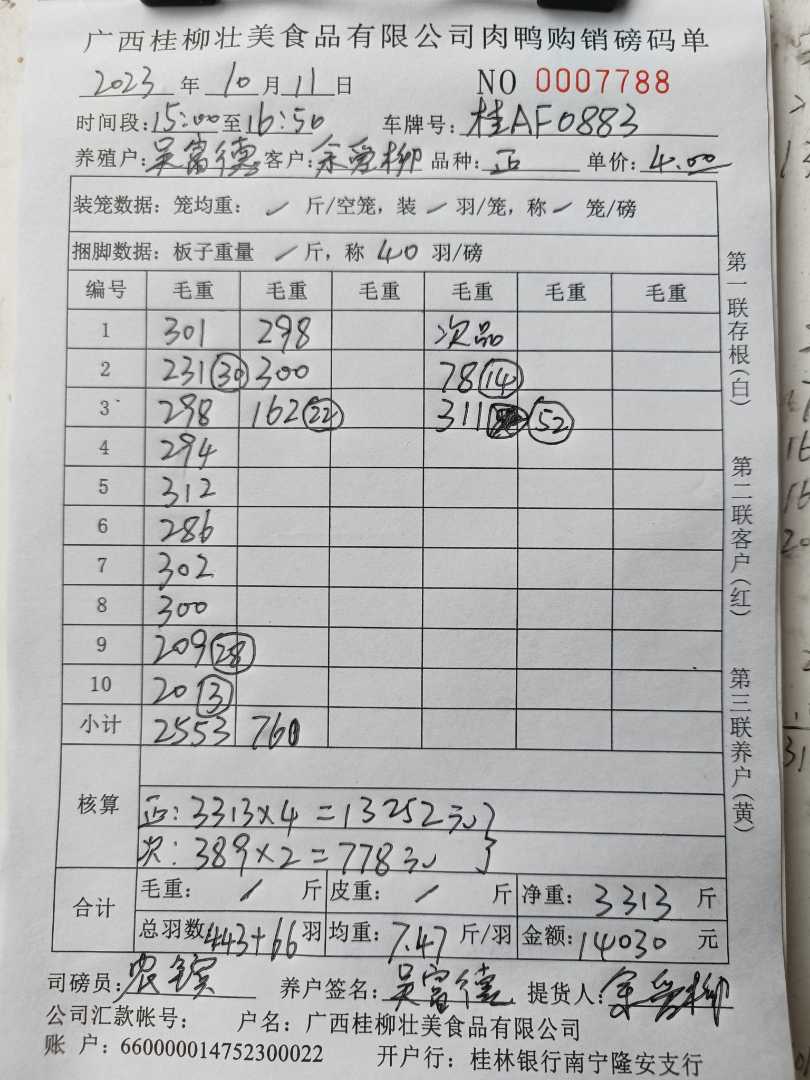 广西桂柳壮美食品有限公司肉鸭购销磅码单
2023 年 10 月 11 日 NO 0007788
时间段:15:00至16:50 车牌号:桂AF0883
养殖户:吴富德 客户:余爱柳 品种:正 单价:4.00
装笼数据:笼均重: / 斤/空笼,装 / 羽/笼,称 / 笼/磅
捆脚数据:板子重量 / 斤,称 40 羽/磅
编号 毛重 毛重 毛重 毛重 毛重 毛重
1 301 298 次品
2 231 30 300 78 14
3 298 162 22 311 52
4 294
5 312
6 286
7 302
8 300
9 209 28
10 20 3
小计 2553 760
核算
正:3313×4=13252元}
次:389×2=778元}
合计
毛重: / 斤 皮重: / 斤 净重:3313 斤
总羽数443+66羽 均重:7.47 斤/羽 金额:14030 元
司磅员: 养户签名:吴富德 提货人:余爱柳
公司汇款帐号: 户名:广西桂柳壮美食品有限公司
账 户:660000014752300022 开户行:桂林银行南宁隆安支行
第一联存根(白)
第二联客户(红)
第三联养户(黄)